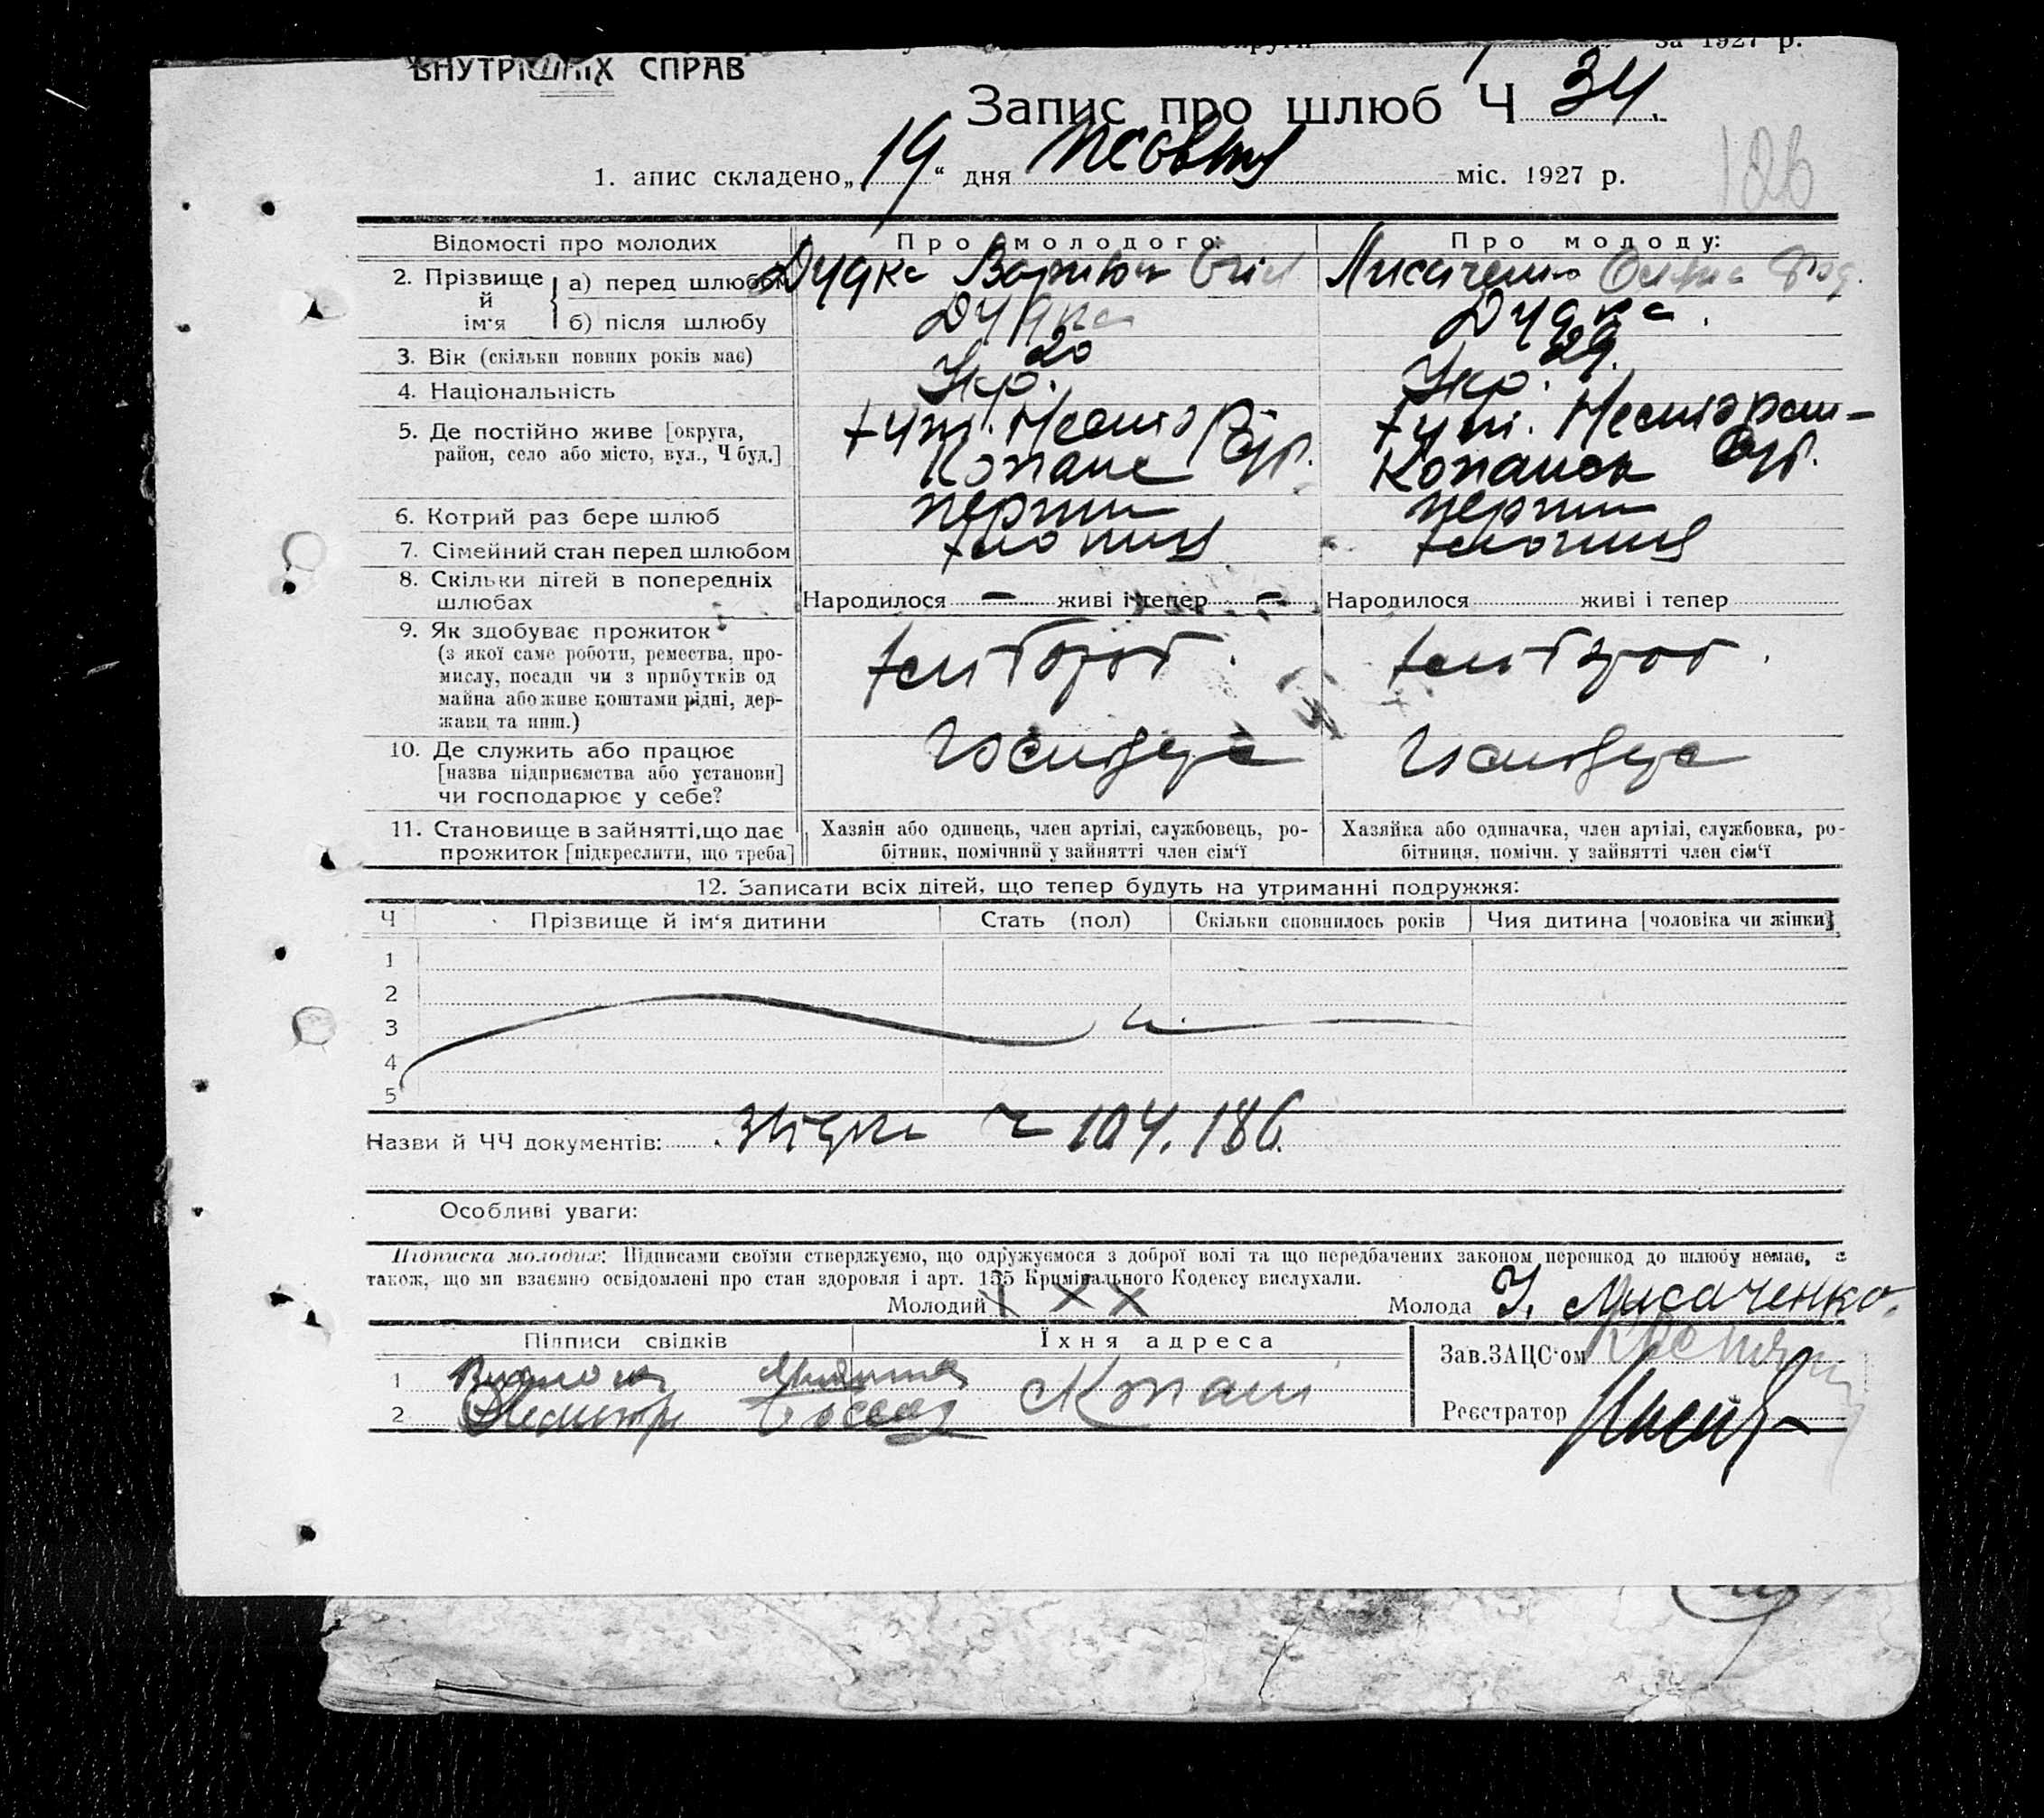 ВНУТРІШНІХ СПРАВ
округи за 1927 р.
Запис про шлюб Ч 34.
1. апис складено „19“ дня жовтня міс. 1927 р.
126
Відомості про молодих Про молодого: Про молоду:
2. Прізвище й ім'я
а) перед шлюбом Дудка Лисаченко
б) після шлюбу Дудка Дудка.
3. Вік (скільки повних років має) 20 29.
4. Національність Укр. Укр.
5. Де постійно живе [округа, хут. хут.
район, село або місто, вул., Ч буд.] Копане
6. Котрий раз бере шлюб перший перший
7. Сімейний стан перед шлюбом
8. Скільки дітей в попередніх
шлюбах Народилося — живі і тепер — Народилося живі і тепер
9. Як здобуває прожиток
(з якої саме роботи, ремества, про-
мислу, посади чи з прибутків од
майна або живе коштами рідні, дер-
жави та инш.)
хлібороб. хлібороб.
10. Де служить або працює
[назва підприємства або установи]
чи господарює у себе?
11. Становище в зайнятті, що дає
прожиток [підкреслити, що треба]
Хазяін або одинець, член артілі, службовець, ро-
бітник, помічний у зайнятті член сім'ї
Хазяйка або одиначка, член артілі, службовка, ро-
бітниця, помічн. у зайнятті член сім'ї
12. Записати всіх дітей, що тепер будуть на утриманні подружжя:
Ч Прізвище й ім'я дитини Стать (пол) Скільки сповнилось років Чия дитина [чоловіка чи жінки]
1
2
3
4
5
Назви й ЧЧ документів: ч 104.186.
Особливі уваги:
Підписка молодих: Підписами своїми стверджуємо, що одружуємося з доброї волі та що передбачених законом перешкод до шлюбу немає, а
також, що ми взаємно освідомлені про стан здоровля і арт. 155 Кримінального Кодексу вислухали.
Молодий X X X Молода У. Лисаченко.
Підписи свідків Їхня адреса
Зав.ЗАЦС'ом
1
2 Копані
Реєстратор